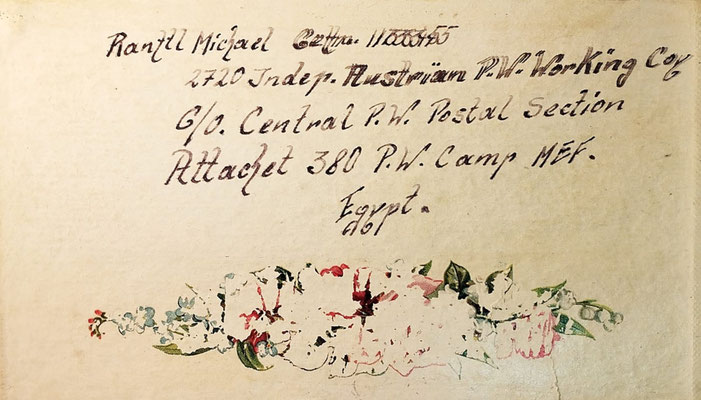 Ranftl Michael
2720 Indep. Austrian P.W. Working Coy
C/O. Central P.W. Postal Section
Attachet 380 P.W. Camp MEF.
Egypt.